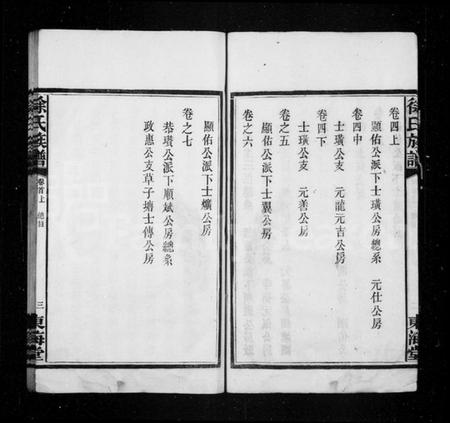 徐氏族譜
卷四上
顯佑公派下士璜公房總系　元仕公房
卷四中
士璜公支　元龍元吉公房
卷四下
士璜公支　元善公房
卷之五
顯佑公派下士翼公房
卷之六
顯佑公派下士爌公房
卷之七
恭璜公派下順斌公房總系
政惠公支草子塘士傳公房
徐氏族譜
卷首上　總目
三
東海堂
東海堂